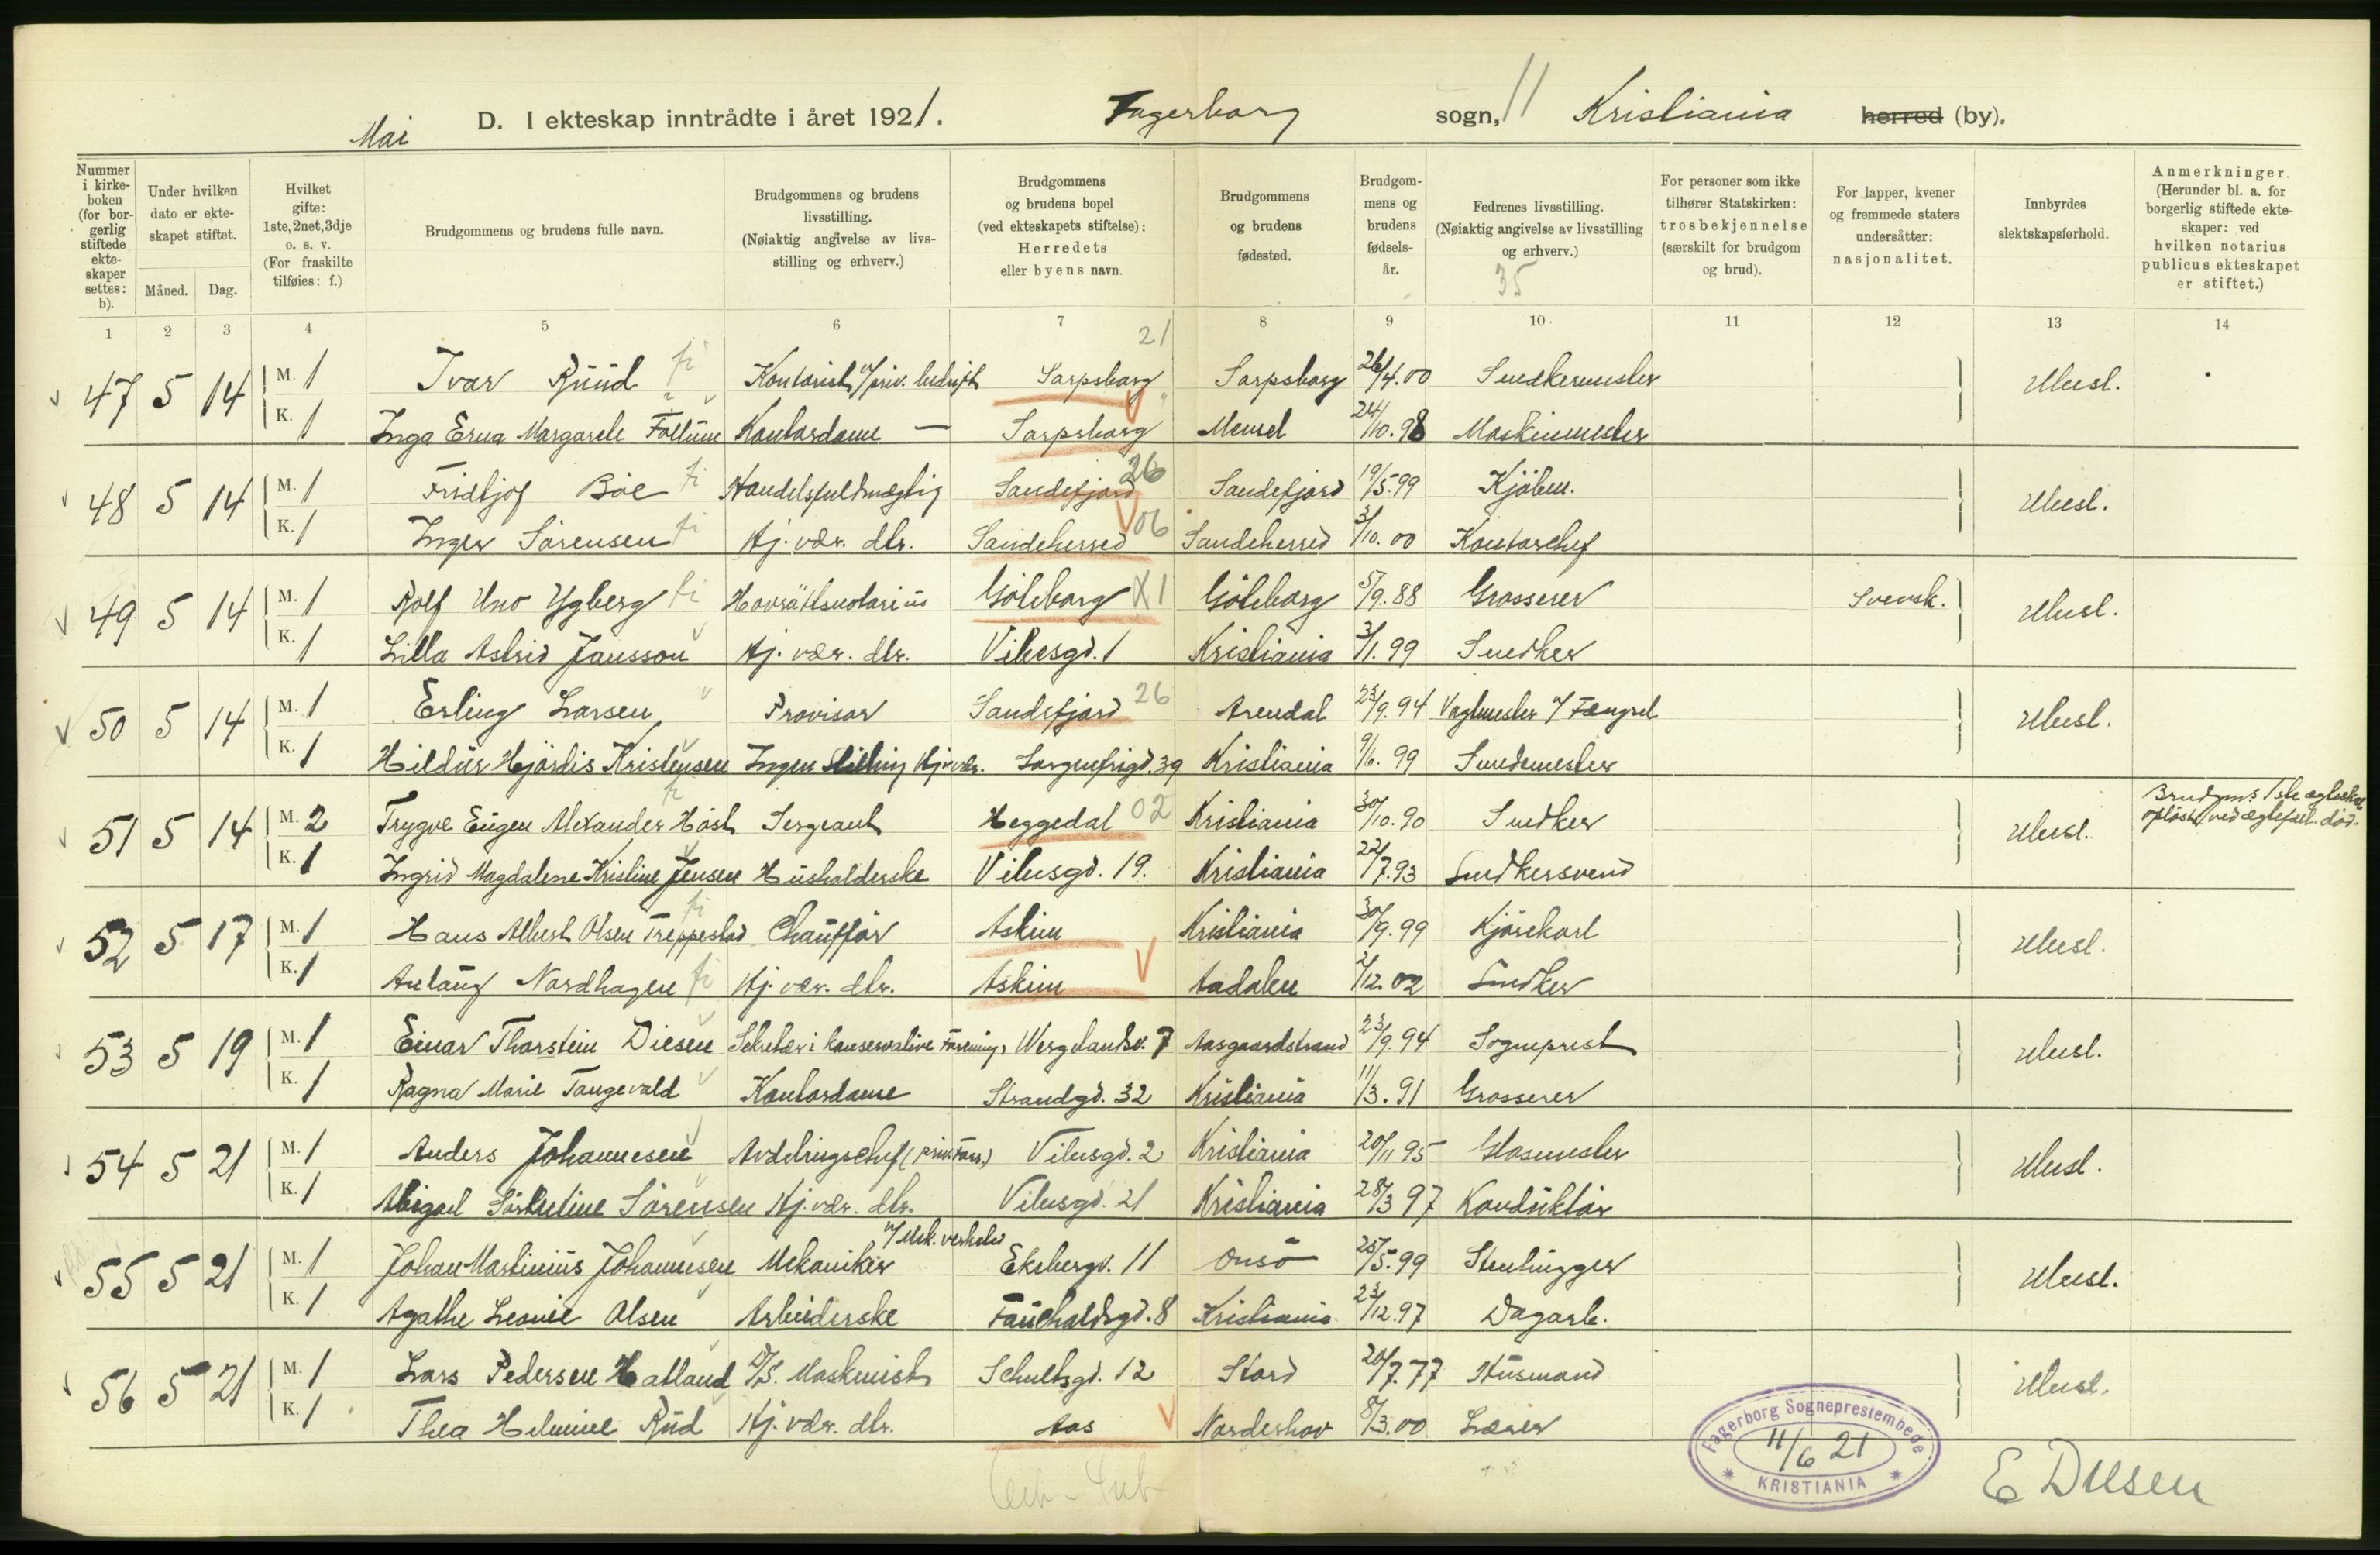 Mai D. I ekteskap inntrådte i året 1921. Fagerborg sogn, 11 Kristiania herred (by).
Nummer i kirke-boken (for bor-gerlig stiftede ekte-skaper settes: b).
Under hvilken dato er ekte-skapet stiftet.
Måned. Dag.
Hvilket gifte: 1ste, 2net, 3dje o. s. v. (For fraskilte tilføies: f.)
Brudgommens og brudens fulle navn.
Brudgommens og brudens livsstilling. (Nøiaktig angivelse av livs-stilling og erhverv.)
Brudgommens og brudens bopel (ved ekteskapets stiftelse): Herredets eller byens navn.
Brudgommens og brudens fødested.
Brudgom-mens og brudens fødsels-år.
Fedrenes livsstilling. (Nøiaktig angivelse av livsstilling og erhverv.)
35
For personer som ikke tilhører Statskirken: trosbekjennelse (særskilt for brudgom og brud).
For lapper, kvener og fremmede staters undersåtter: nasjonalitet.
Innbyrdes slektskapsforhold.
Anmerkninger. (Herunder bl. a. for borgerlig stiftede ekte-skaper: ved hvilken notarius publicus ekteskapet er stiftet.)
1 2 3 4 5 6 7 8 9 10 11 12 13 14
21
47 5 14 M. 1 Ivar Ruud Kontorist v/priv. bedrift Sarpsborg Sarpsborg 26/4.00 Snedkermester Ubesl.
K. 1 Inga Erna Margarete Follum Kontordame — Sarpsborg 24/10.98 Maskinmester
48 5 14 M. 1 Fridtjof Böe Handelsfuldmægtig Sandefjord 26 Sandefjord 19/5.99 Kjöbm. Ubesl.
K. 1 Inger Sörensen Hj. vær. dtr. Sandeherred 06 Sandeherred 3/10.00 Kontorchef
49 5 14 M. 1 Rolf Uno Ygberg Hovrättsnotarius Göteborg X1 Göteborg 5/9.88 Grosserer Svensk. Ubesl.
K. 1 Lilla Astrid Jansson Hj. vær. dtr. Vibesgd. 1 Kristiania 3/1.99 Snedker
50 5 14 M. 1 Erling Larsen Provisor Sandefjord 26 Arendal 23/9.94 Vagtmester v/ Fængsel Ubesl.
K. 1 Hildur Hjördis Kristensen Ingen stilling Hj. vær. Sorgenfrigd. 39 Kristiania 9/6.99 Smedemester
51 5 14 M. 2 Trygve Eugen Alexander Höst Sergeant Heggedal 02 Kristiania 30/10.90 Snedker Ubesl. Brudgms 1ste ægteskab oplöst ved ægtefæl. död.
K. 1 Ingrid Magdalene Kristine Jensen Husholderske Vibesgd. 19. Kristiania 22/7.93 Snedkersvend
52 5 17 M. 1 Hans Albert Olsen Treppestad Chaufför Askim Kristiania 30/9.99 Kjörekarl Ubesl.
K. 1 Nordhagen Hj. vær. dtr. Askim Aadalen 2/12.02 Snedker
53 5 19 M. 1 Einar Thorstein Diesen Sekretær i konservative Forening Wergelandsv. 7 Aasgaardstrand 23/9.94 Sogneprest Ubesl.
K. 1 Ragna Marie Tangevald Kontordame Strandgd. 32 Kristiania 11/3.91 Grosserer
54 5 21 M. 1 Anders Johannesen Avdelingschef (priv. forr.) Vibesgd. 2 Kristiania 20/11 95 Glasmester Ubesl.
K. 1 Abigael Sörensen Hj. vær. dtr. Vibesgd. 21 Kristiania 28/3 97 Konduktör
55 5 21 M. 1 Johan Martinius Johannesen Mekaniker v/ Mek. verksted Ekebergv. 11 Onsö 25/5.99 Stenhugger Ubesl.
K. 1 Agathe Leonie Olsen Arbeiderske Fauchaldsgd. 8 Kristiania 23/12.97 Dagarb.
56 5 21 M. 1 Lars Pedersen Hatland D/S. Maskinist Schultsgd. 12 Stord 20/7.77 Husmand Ubesl.
K. 1 Thea Helmine Rud Hj. vær. dtr. Aas Norderhov 8/3.00 Lærer
Fagerborg Sogneprestembede
11/6 21
KRISTIANIA
E Diesen